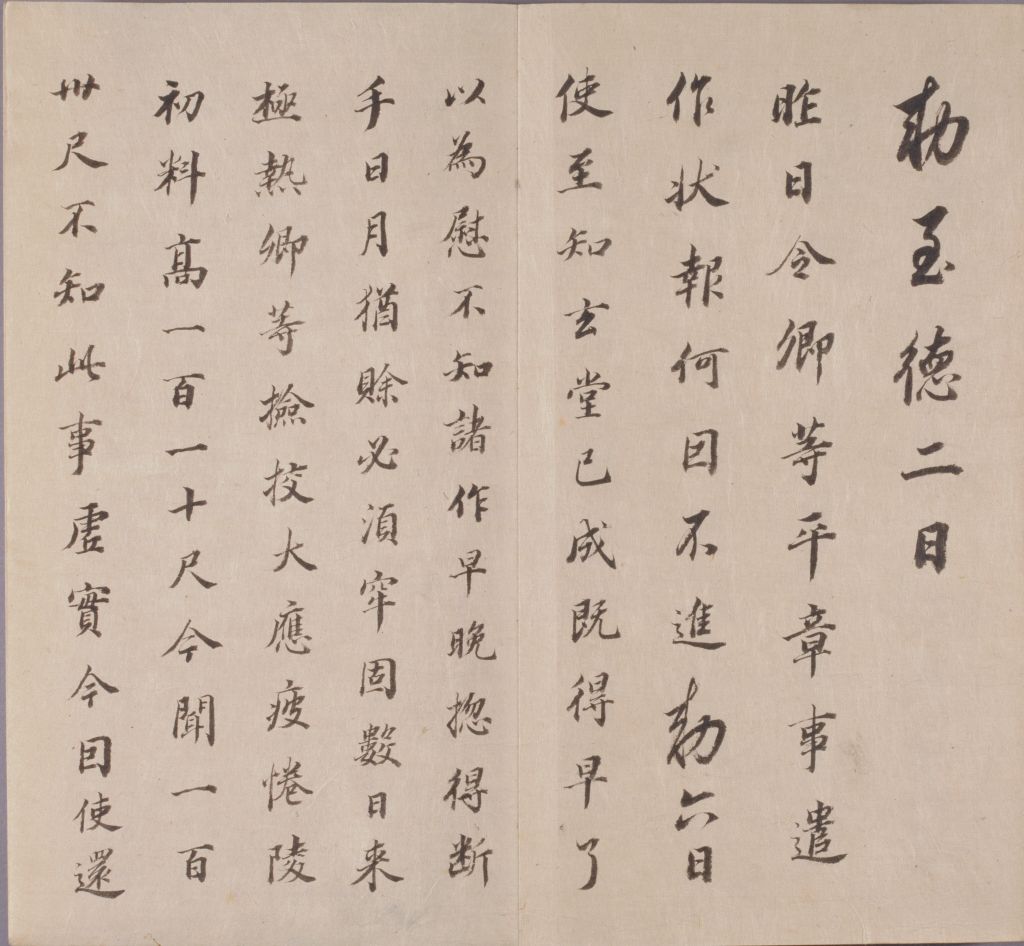 勑至德二日
昨日令卿等平章事遣
作状報何因不進勑六日
使至知玄堂已成既得早了
以為慰不知諸作早晚揔得断
手日月猶賒必湏牢固數日来
極熱卿等撿挍大應疲惓陵
初料髙一百一十尺今聞一百
卅尺不知此事虛實今因使還